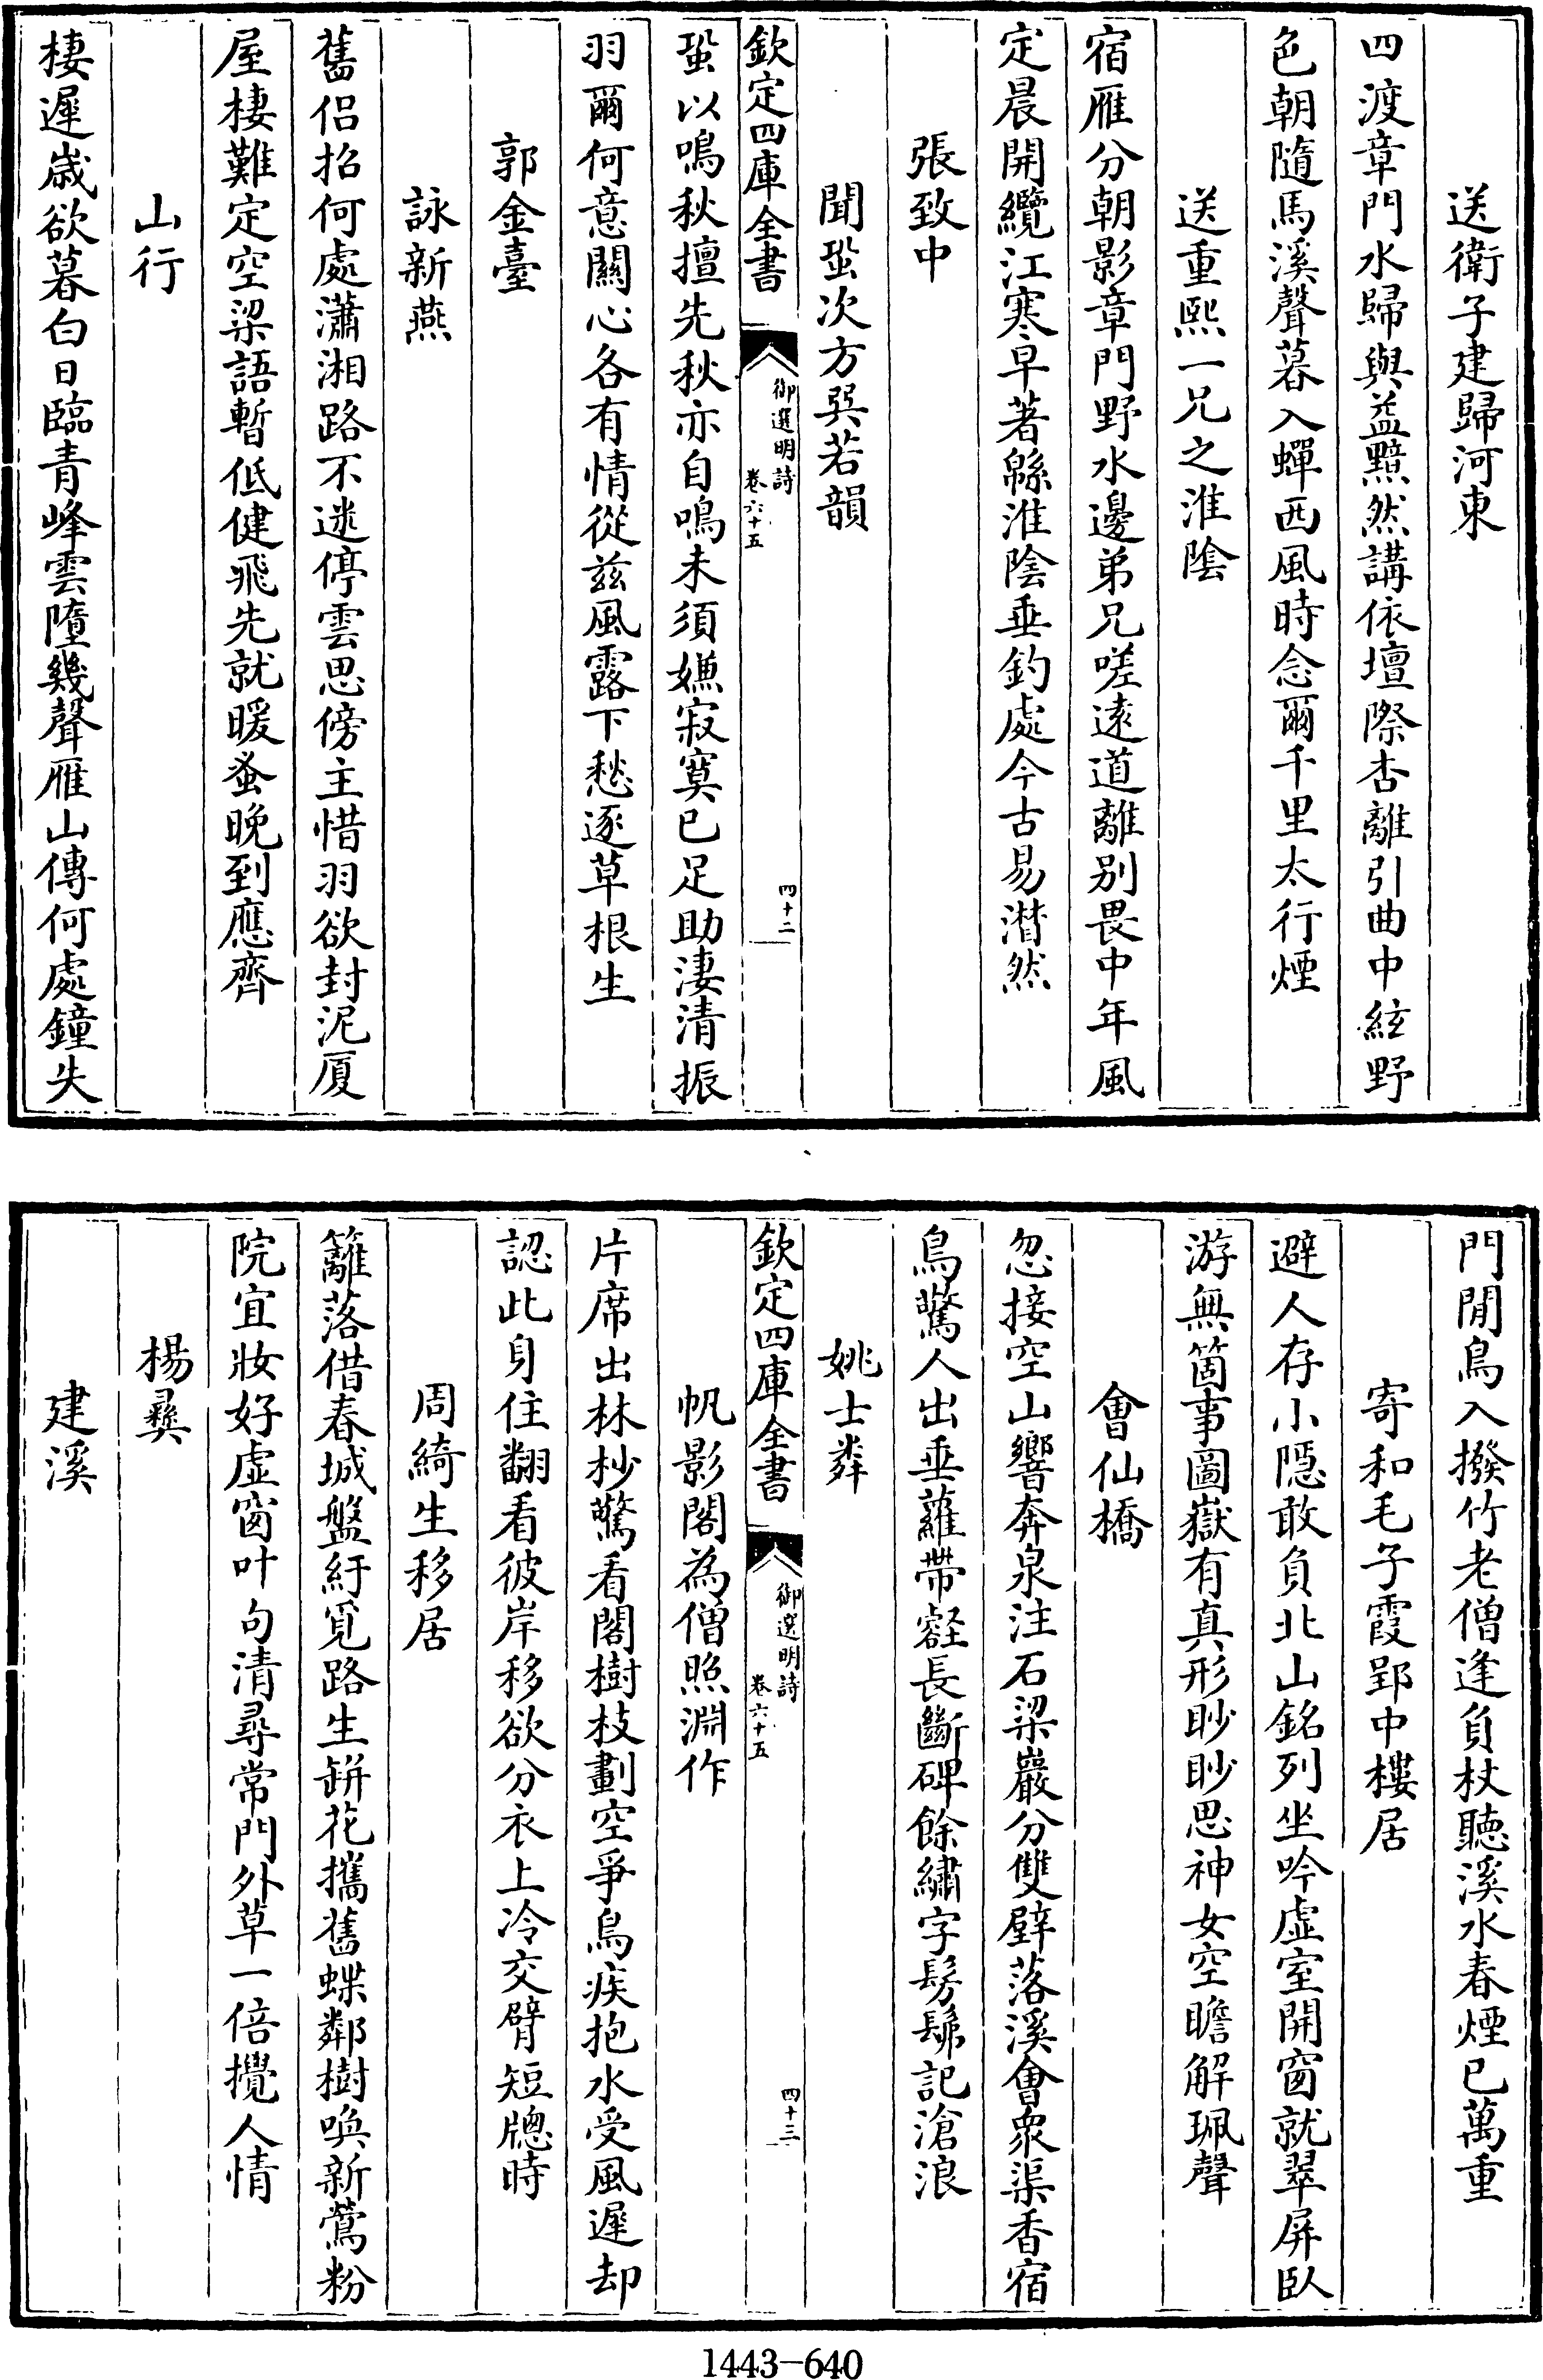 送衛子建歸河東
四渡章門水歸與益黯然講依壇際杏離引曲中絃野
色朝隨馬溪聲暮入蟬西風時念爾千里太行煙
送重熙一兄之淮陰
宿雁分朝影章門野水邊弟兄嗟遠道離別畏中年風
定晨開纜江寒早著緜淮陰垂釣處今古易潸然
張致中
聞蛩次方巽若韻
欽定四庫全書
御選明詩
卷六十五
四十二
蛩以鳴秋擅先秋亦自鳴未須嫌寂寞已足助淒清振
羽爾何意關心各有情從茲風露下愁逐草根生
郭金臺
詠新燕
舊侶招何處瀟湘路不迷停雲思傍主惜羽欲封泥厦
屋棲難定空梁語暫低健飛先就暖蚤晚到應齊
山行
棲遲歲欲暮白日臨青峰雲墮幾聲雁山傳何處鐘失
門閒鳥入撥竹老僧逢負杖聽溪水春煙已萬重
寄和毛子霞郢中樓居
避人存小隱敢負北山銘列坐吟虛室開窗就翠屏臥
游無箇事圖嶽有真形眇眇思神女空瞻解珮聲
會仙橋
忽接空山響奔泉注石梁巖分雙壁落溪會衆渠香宿
鳥驚人出垂蘿帶壑長斷碑餘繡字髣髴記滄浪
姚士粦
欽定四庫全書
御選明詩
卷六十五
四十三
帆影閣為僧照淵作
片席出林杪驚看閣樹枝劃空爭鳥疾抱水受風遲却
認此身住翻看彼岸移欲分衣上冷交臂短牕時
周綺生移居
籬落借春城盤紆覓路生缾花攜舊蝶鄰樹喚新鶯粉
院宜妝好虛窗叶句清尋常門外草一倍攪人情
楊彝
建溪
1443-640